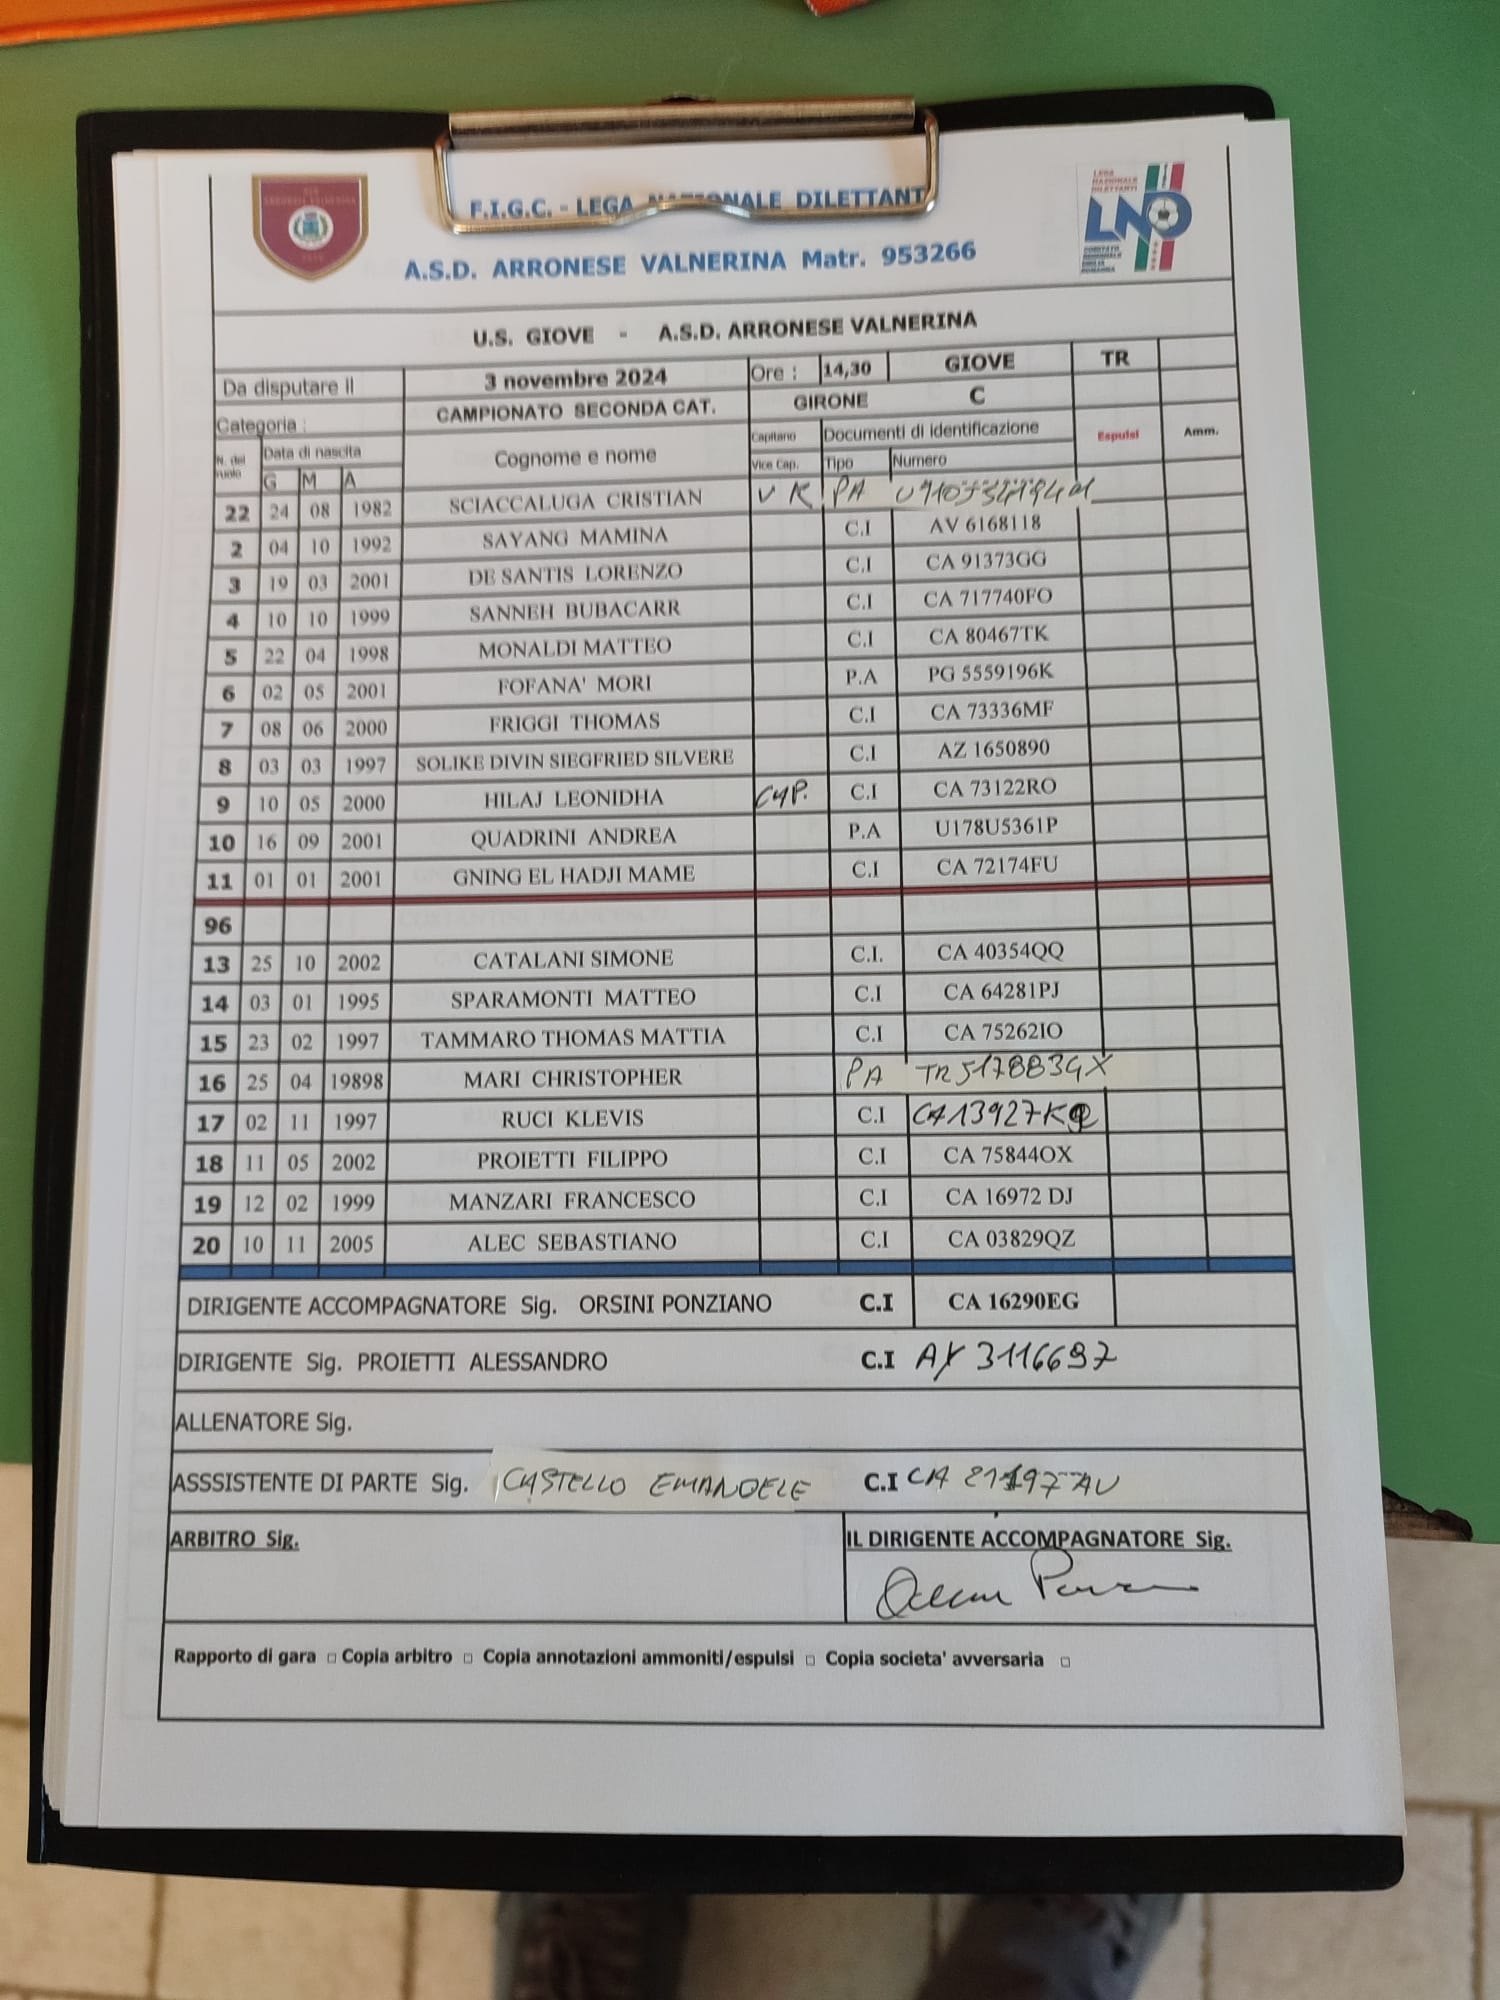 F.I.G.C. - LEGA NAZIONALE DILETTANT
A.S.D. ARRONESE VALNERINA Matr. 953266
LEGA NAZIONALE DILETTANTI
LND
U.S. GIOVE - A.S.D. ARRONESE VALNERINA
Da disputare il 3 novembre 2024 Ore : 14,30 GIOVE TR
Categoria : CAMPIONATO SECONDA CAT. GIRONE C
N. del ruolo Data di nascita G M A Cognome e nome Capitano Vice Cap. Documenti di identificazione Tipo Numero Espulsi Amm.
22 24 08 1982 SCIACCALUGA CRISTIAN V K PA
2 04 10 1992 SAYANG MAMINA C.I AV 6168118
3 19 03 2001 DE SANTIS LORENZO C.I CA 91373GG
4 10 10 1999 SANNEH BUBACARR C.I CA 717740FO
5 22 04 1998 MONALDI MATTEO C.I CA 80467TK
6 02 05 2001 FOFANA' MORI P.A PG 5559196K
7 08 06 2000 FRIGGI THOMAS C.I CA 73336MF
8 03 03 1997 SOLIKE DIVIN SIEGFRIED SILVERE C.I AZ 1650890
9 10 05 2000 HILAJ LEONIDHA CAP. C.I CA 73122RO
10 16 09 2001 QUADRINI ANDREA P.A U178U5361P
11 01 01 2001 GNING EL HADJI MAME C.I CA 72174FU
96
13 25 10 2002 CATALANI SIMONE C.I. CA 40354QQ
14 03 01 1995 SPARAMONTI MATTEO C.I CA 64281PJ
15 23 02 1997 TAMMARO THOMAS MATTIA C.I CA 75262IO
16 25 04 19898 MARI CHRISTOPHER PA TR5178834X
17 02 11 1997 RUCI KLEVIS C.I CA13927KQ
18 11 05 2002 PROIETTI FILIPPO C.I CA 75844OX
19 12 02 1999 MANZARI FRANCESCO C.I CA 16972 DJ
20 10 11 2005 ALEC SEBASTIANO C.I CA 03829QZ
DIRIGENTE ACCOMPAGNATORE Sig. ORSINI PONZIANO C.I CA 16290EG
DIRIGENTE Sig. PROIETTI ALESSANDRO C.I AX 3116697
ALLENATORE Sig.
ASSSISTENTE DI PARTE Sig. CASTELLO EMANUELE C.I CA 21497AU
ARBITRO Sig. IL DIRIGENTE ACCOMPAGNATORE Sig.
Rapporto di gara □ Copia arbitro □ Copia annotazioni ammoniti/espulsi □ Copia societa' avversaria □